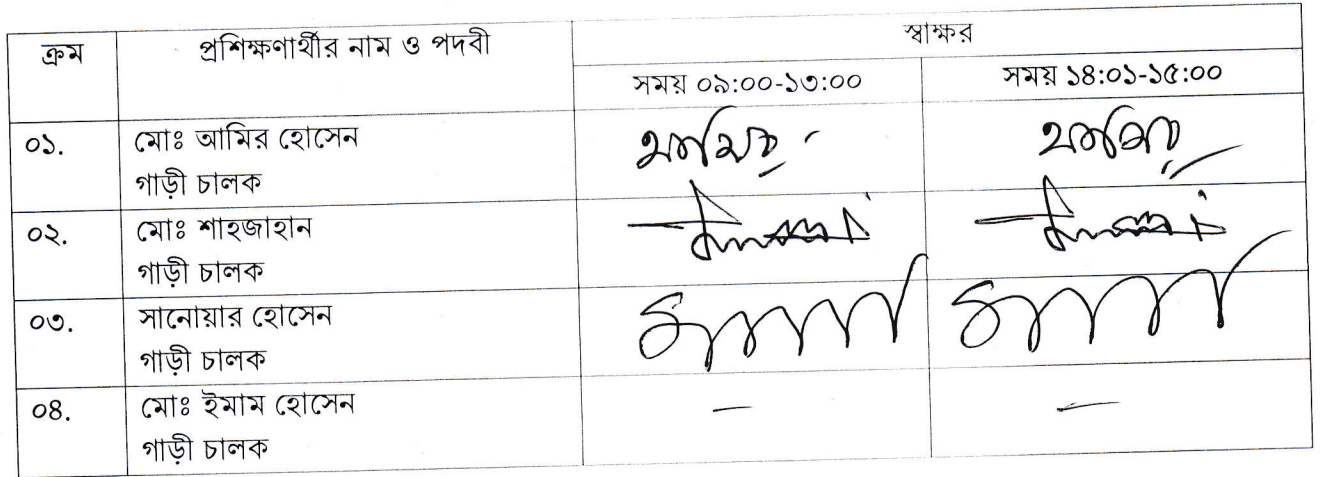 ক্রম প্রশিক্ষণার্থীর নাম ও পদবী স্বাক্ষর
সময় ০৯:০০-১৩:০০ সময় ১৪:০১-১৫:০০
০১. মোঃ আমির হোসেন
গাড়ী চালক
০২. মোঃ শাহজাহান
গাড়ী চালক
০৩. সানোয়ার হোসেন
গাড়ী চালক
০৪. মোঃ ইমাম হোসেন — —
গাড়ী চালক